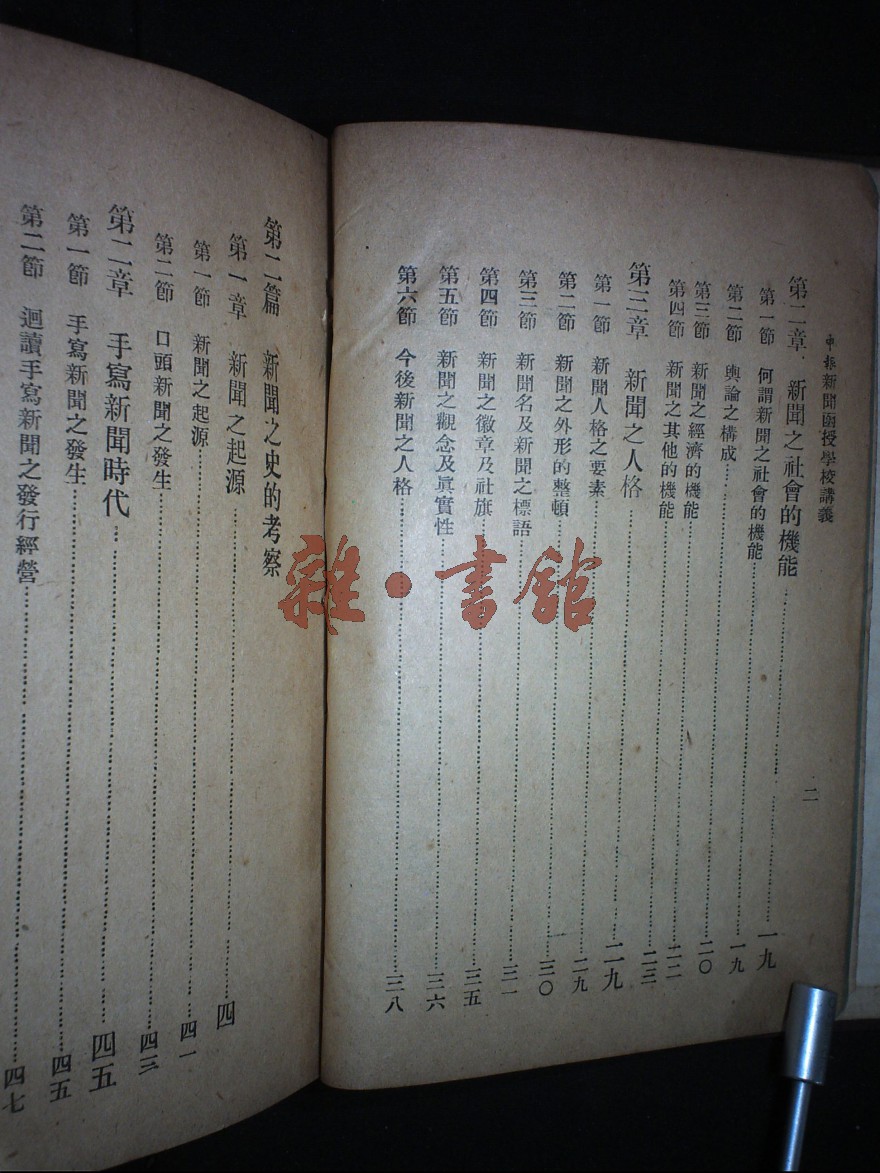 申報新聞函授學校講義
二
第二章 新聞之社會的機能……一九
第一節 何謂新聞之社會的機能……一九
第二節 輿論之構成……二〇
第三節 新聞之經濟的機能……二二
第四節 新聞之其他的機能……二三
第三章 新聞之人格……二九
第一節 新聞人格之要素……二九
第二節 新聞之外形的整頓……三〇
第三節 新聞名及新聞之標語……三一
第四節 新聞之徽章及社旗……三五
第五節 新聞之觀念及眞實性……三六
第六節 今後新聞之人格……三八
第二篇 新聞之史的考察
第一章 新聞之起源……四
第一節 新聞之起源……四一
第二節 口頭新聞之發生……四三
第二章 手寫新聞時代……四五
第一節 手寫新聞之發生……四五
第二節 迴讀手寫新聞之發行經營……四七
雜·書館